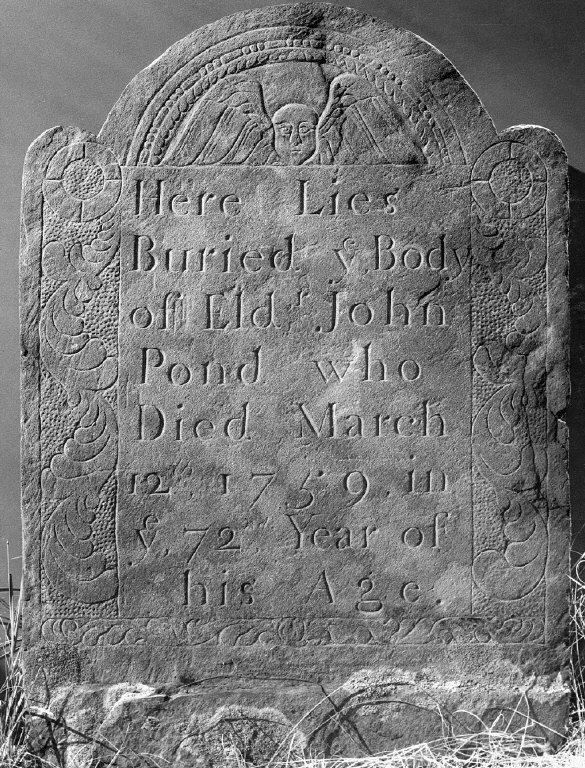 Here Lies
Buried yͤ Body
of Eldʳ John
Pond who
Died March
12, 1759, in
yͤ, 72ⁿ Year of
his Age.